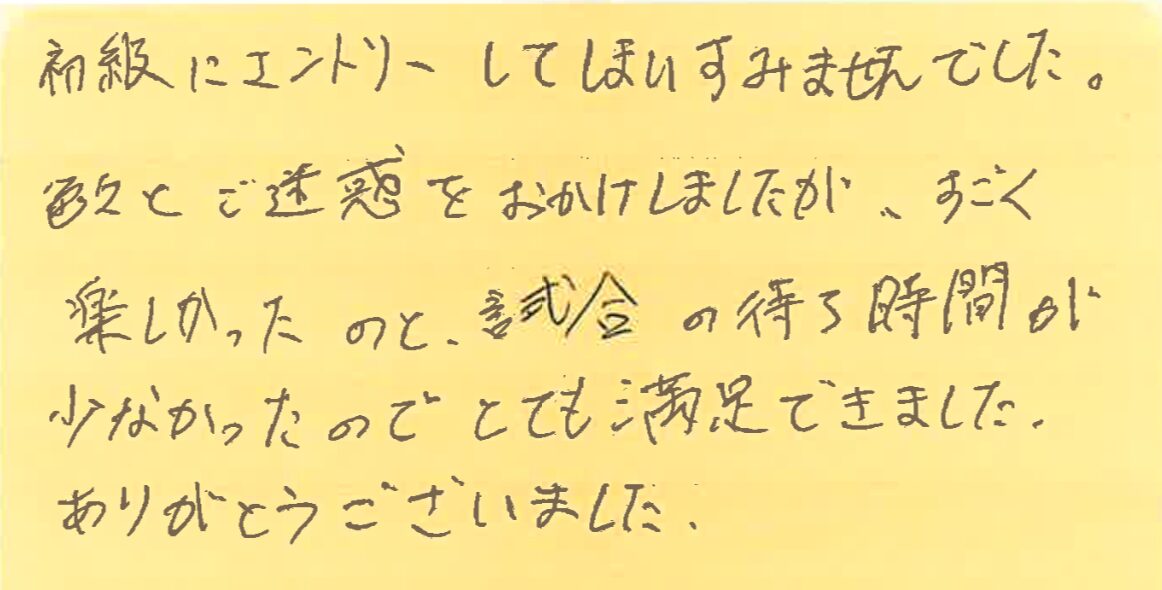 初級にエントリーしてしまいすみませんでした。
数々とご迷惑をおかけしましたが、すごく
楽しかったのと、試合の待ち時間が
少なかったのでとても満足できました、
ありがとうございました、